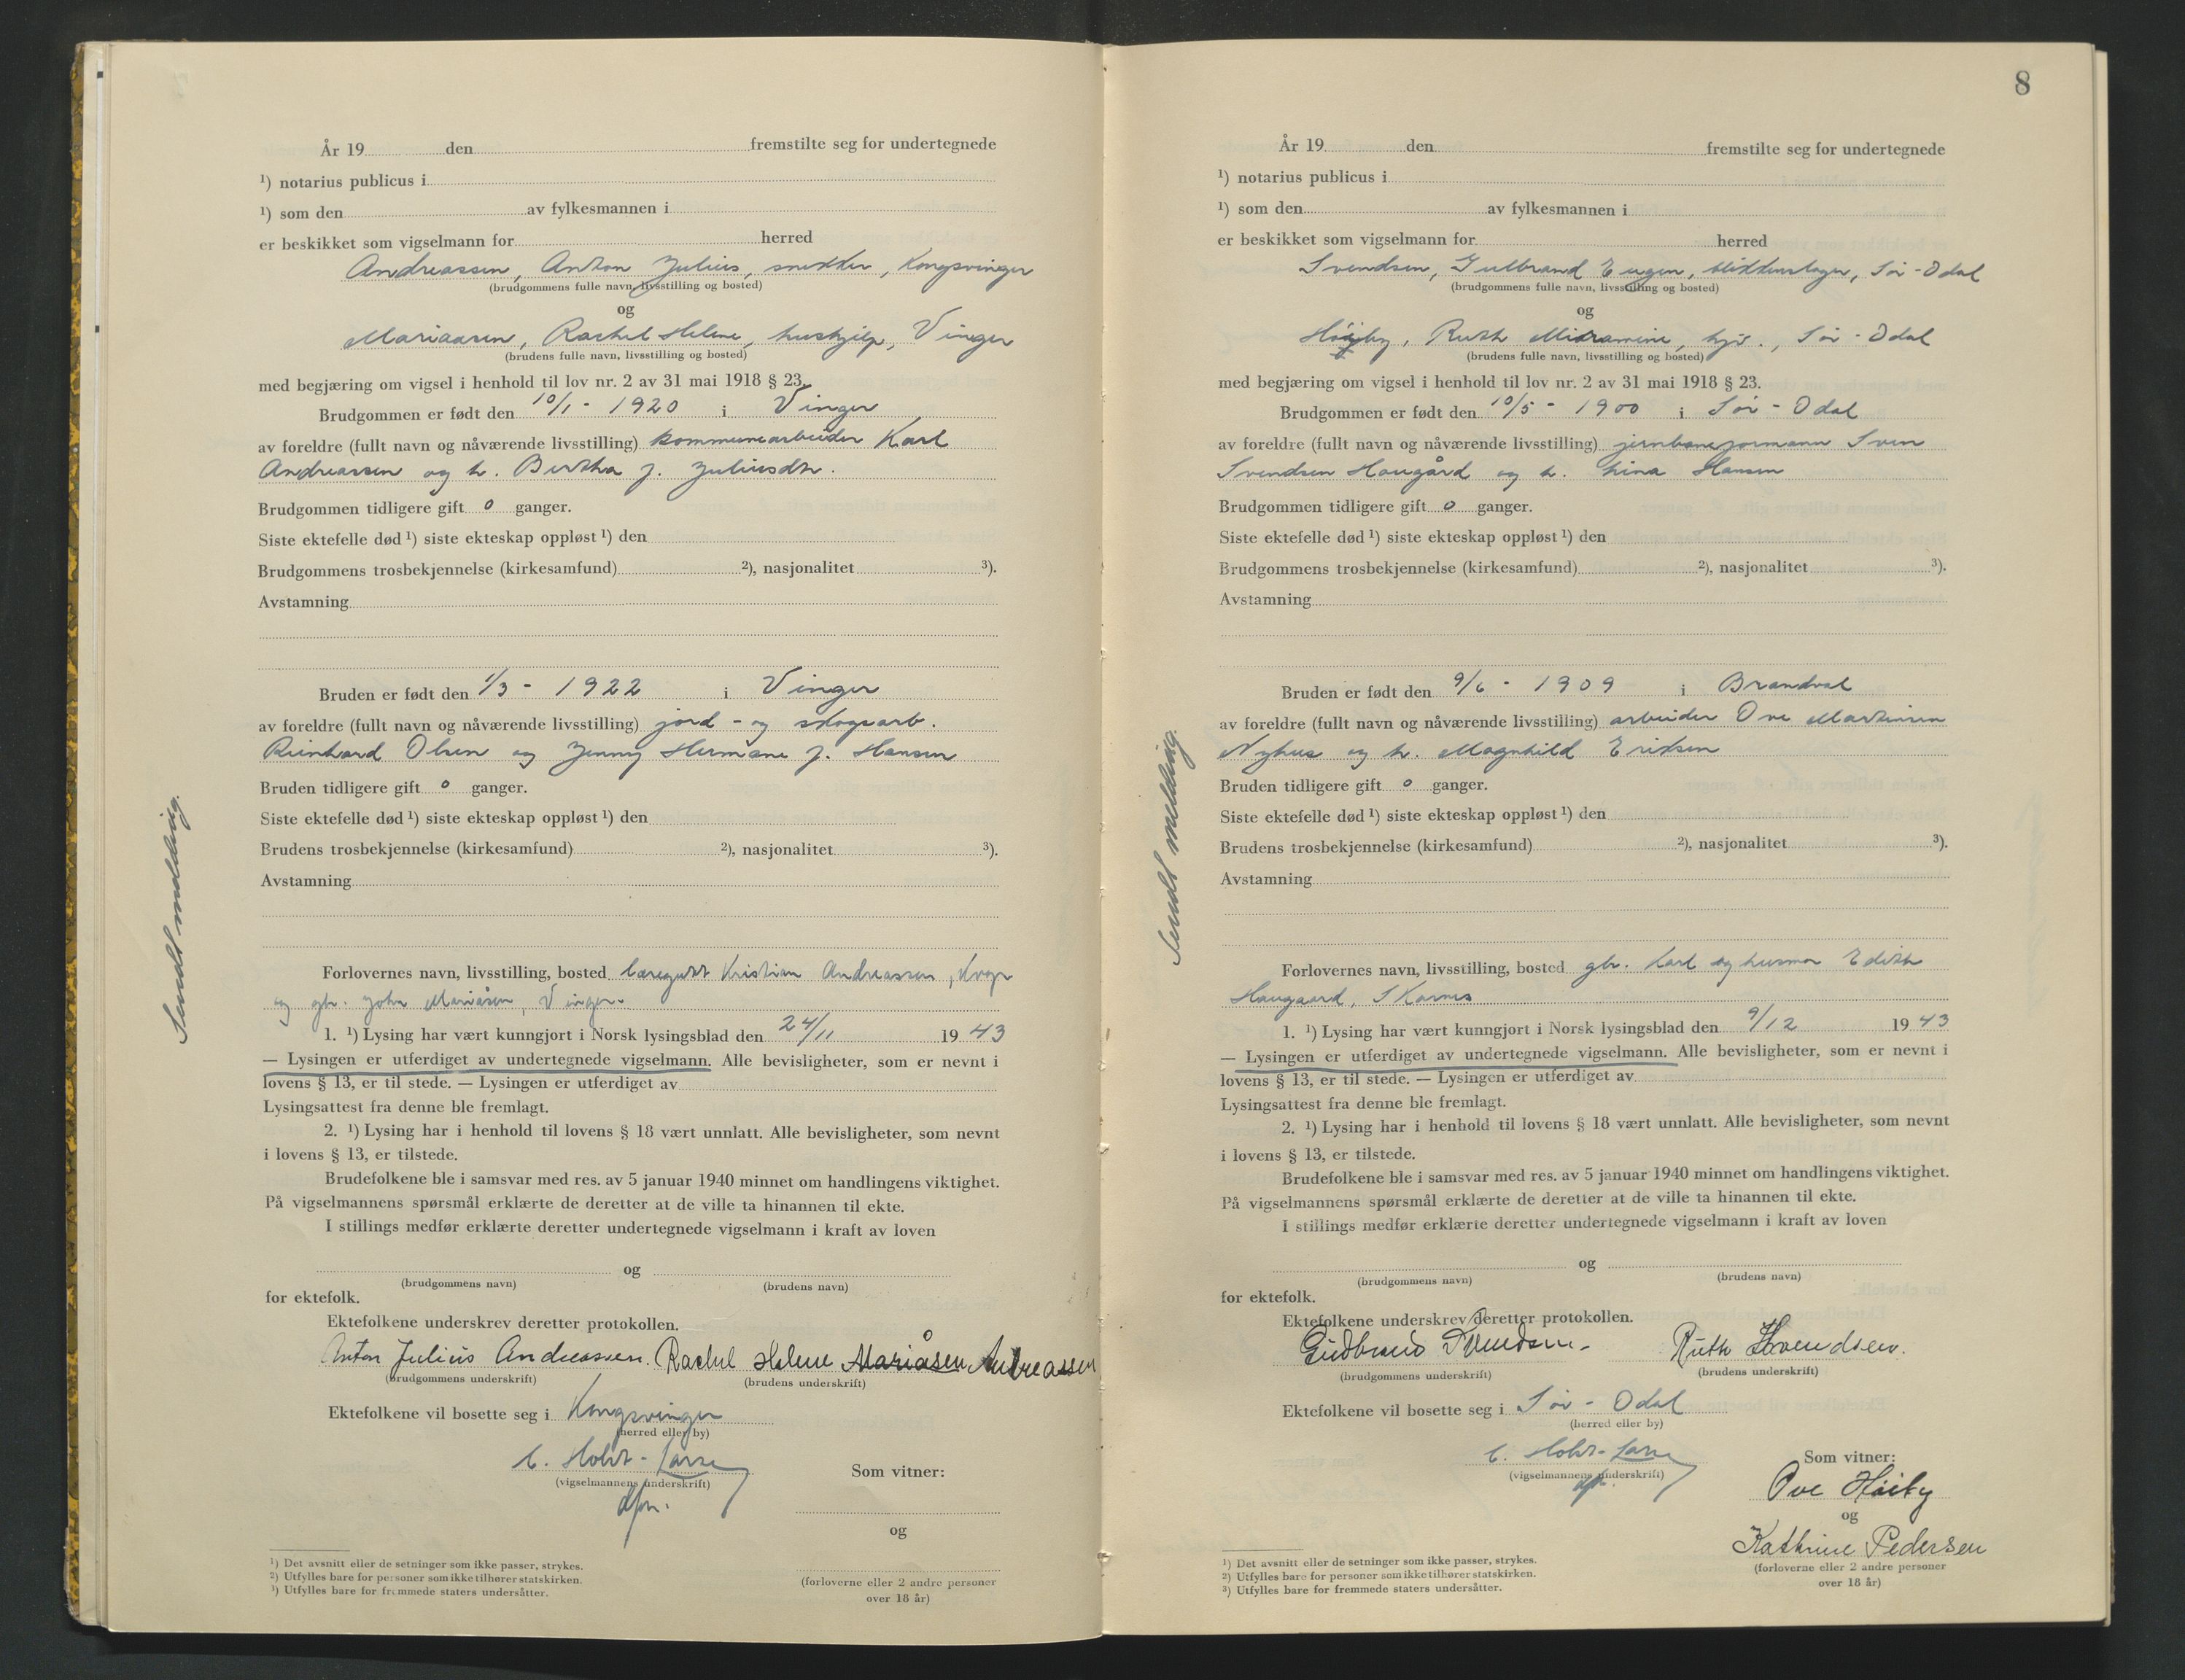 År 19 den fremstilte seg for undertegnede
¹) notarius publicus i
¹) som den av fylkesmannen i
er beskikket som vigselmann for herred
Andreassen, Anton Julius, snekker, Kongsvinger
(brudgommens fulle navn, livsstilling og bosted)
og
Mariaasen, Rachel Helene, hushjelp, Vinger
(brudens fulle navn, livsstilling og bosted)
med begjæring om vigsel i henhold til lov nr. 2 av 31 mai 1918 § 23.
Brudgommen er født den 10/1 - 1920 i Vinger
av foreldre (fullt navn og nåværende livsstilling) kommunearbeider Karl
Andreassen og h. Bertha f. Juliusdtr.
Brudgommen tidligere gift 0 ganger.
Siste ektefelle død ¹) siste ekteskap oppløst ¹) den
Brudgommens trosbekjennelse (kirkesamfund) ²), nasjonalitet ³).
Avstamning
Bruden er født den 1/3 - 1922 i Vinger
av foreldre (fullt navn og nåværende livsstilling) jord- og skogsarb.
Reinhard Olsen og Jenny Hermane f. Hansen
Bruden tidligere gift 0 ganger.
Siste ektefelle død ¹) siste ekteskap oppløst ¹) den
Brudens trosbekjennelse (kirkesamfund) ²), nasjonalitet ³).
Avstamning
Sendt melding.
Forlovernes navn, livsstilling, bosted læregutt Kristian Andreassen, Kvgr
og gbr. John Mariåsen, Vinger.
1. ¹) Lysing har vært kunngjort i Norsk lysingsblad den 24/11 1943
— Lysingen er utferdiget av undertegnede vigselmann. Alle bevisligheter, som er nevnt i
lovens § 13, er til stede. — Lysingen er utferdiget av
Lysingsattest fra denne ble fremlagt.
2. ¹) Lysing har i henhold til lovens § 18 vært unnlatt. Alle bevisligheter, som nevnt
i lovens § 13, er tilstede.
Brudefolkene ble i samsvar med res. av 5 januar 1940 minnet om handlingens viktighet.
På vigselmannens spørsmål erklærte de deretter at de ville ta hinannen til ekte.
I stillings medfør erklærte deretter undertegnede vigselmann i kraft av loven
og
(brudgommens navn) (brudens navn)
for ektefolk.
Ektefolkene underskrev deretter protokollen.
Anton Julius Andreassen. Rachel Helene Mariåsen Andreassen
(brudgommens underskrift) (brudens underskrift)
Ektefolkene vil bosette seg i Kongsvinger
(herred eller by)
C. Holst-Larsen
(vigselmannens underskrift)
dfm.
Som vitner:
og
(forloverne eller 2 andre personer
over 18 år)
¹) Det avsnitt eller de setninger som ikke passer, strykes.
²) Utfylles bare for personer som ikke tilhører statskirken.
³) Utfylles bare for fremmede staters undersåtter.
8
År 19 den fremstilte seg for undertegnede
¹) notarius publicus i
¹) som den av fylkesmannen i
er beskikket som vigselmann for herred
Svendsen, Gulbrand Eugen, blikkenslager, Sør-Odal
(brudgommens fulle navn, livsstilling og bosted)
og
Høyby, Ruth, Sør-Odal
(brudens fulle navn, livsstilling og bosted)
med begjæring om vigsel i henhold til lov nr. 2 av 31 mai 1918 § 23.
Brudgommen er født den 10/5 - 1900 i Sør-Odal
av foreldre (fullt navn og nåværende livsstilling) jernbaneformann Sven
Svendsen Haugård og h. Lina Hansen
Brudgommen tidligere gift 0 ganger.
Siste ektefelle død ¹) siste ekteskap oppløst ¹) den
Brudgommens trosbekjennelse (kirkesamfund) ²), nasjonalitet ³).
Avstamning
Bruden er født den 9/6 - 1909 i Brandval
av foreldre (fullt navn og nåværende livsstilling) arbeider Ove Martinsen
Nyhus og h. Magnhild Eriksen
Bruden tidligere gift 0 ganger.
Siste ektefelle død ¹) siste ekteskap oppløst ¹) den
Brudens trosbekjennelse (kirkesamfund) ²), nasjonalitet ³).
Avstamning
Sendt melding.
Forlovernes navn, livsstilling, bosted gbr. Karl og husmor Edith
Haugaard, Skarnes
1. ¹) Lysing har vært kunngjort i Norsk lysingsblad den 9/12 1943
— Lysingen er utferdiget av undertegnede vigselmann. Alle bevisligheter, som er nevnt i
lovens § 13, er til stede. — Lysingen er utferdiget av
Lysingsattest fra denne ble fremlagt.
2. ¹) Lysing har i henhold til lovens § 18 vært unnlatt. Alle bevisligheter, som nevnt
i lovens § 13, er tilstede.
Brudefolkene ble i samsvar med res. av 5 januar 1940 minnet om handlingens viktighet.
På vigselmannens spørsmål erklærte de deretter at de ville ta hinannen til ekte.
I stillings medfør erklærte deretter undertegnede vigselmann i kraft av loven
og
(brudgommens navn) (brudens navn)
for ektefolk.
Ektefolkene underskrev deretter protokollen.
Gudbrand Svendsen. Ruth Svendsen.
(brudgommens underskrift) (brudens underskrift)
Ektefolkene vil bosette seg i Sør-Odal
(herred eller by)
C. Holst-Larsen
(vigselmannens underskrift)
Som vitner:
Ove Høiby
og
Kathrine Pedersen
(forloverne eller 2 andre personer
over 18 år)
¹) Det avsnitt eller de setninger som ikke passer, strykes.
²) Utfylles bare for personer som ikke tilhører statskirken.
³) Utfylles bare for fremmede staters undersåtter.